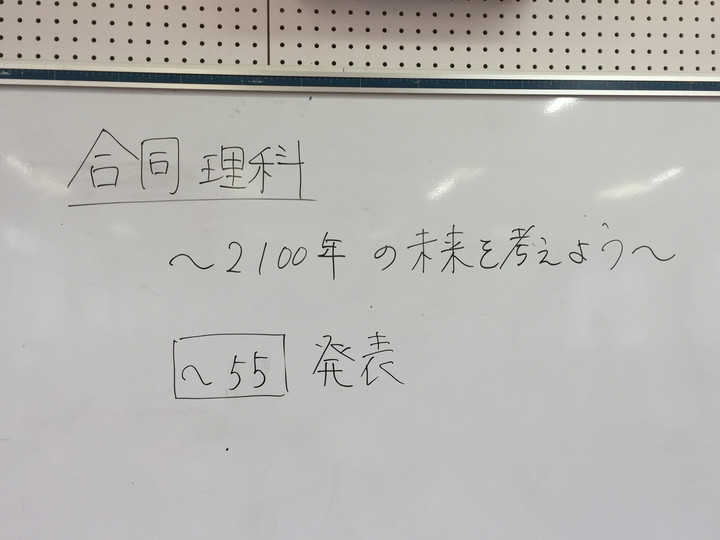 合同理科
～2100年の未来を考えよう～
～55 発表